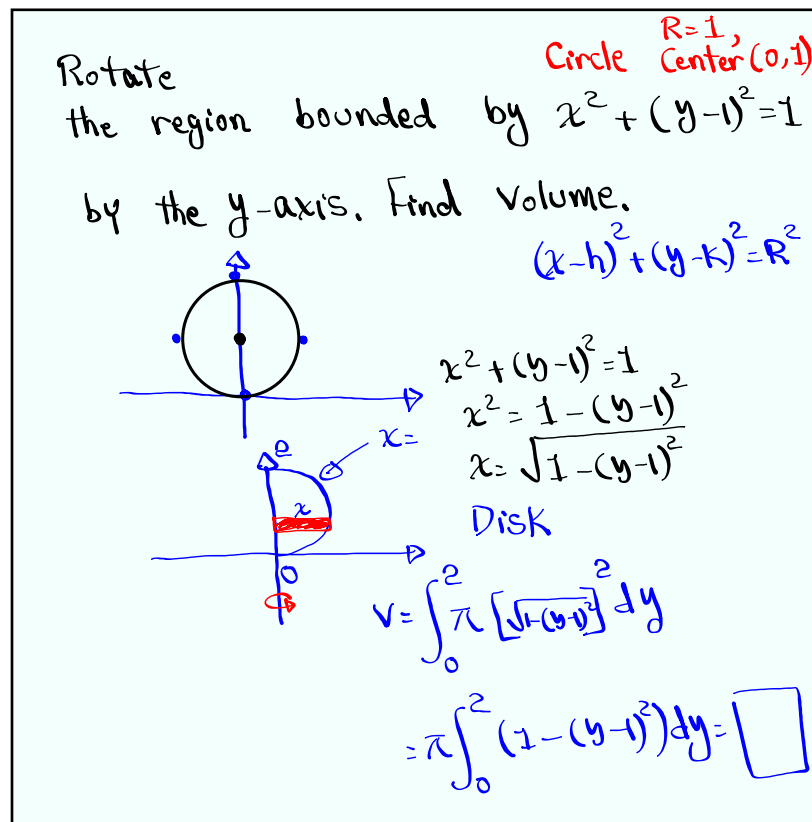 Rotate
Circle R=1, Center (0,1)
the region bounded by x² + (y-1)² = 1
by the y-axis. Find Volume.
(x-h)² + (y-k)² = R²
x² + (y-1)² = 1
x² = 1 - (y-1)²
x = √(1-(y-1)²)
2
x=
x
0
Disk
V = ∫₀² π [√(1-(y-1)²)]² dy
= π ∫₀² (1-(y-1)²) dy = □